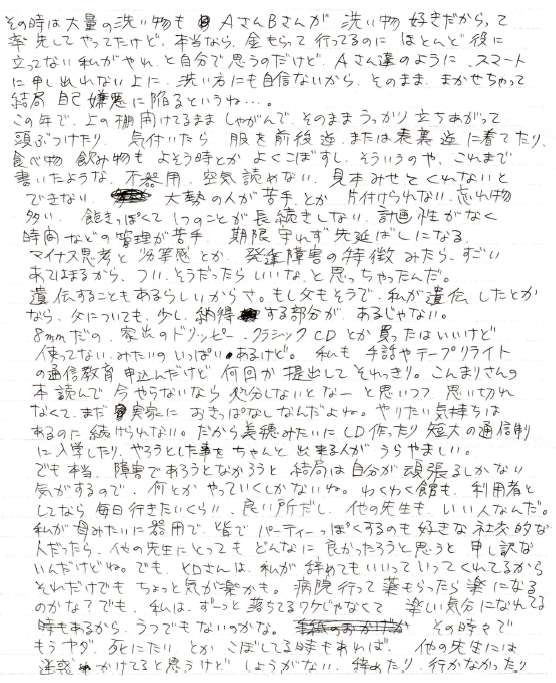 その時は大量の洗い物も AさんBさんが 洗い物 好きだからって
率先してやってたけど、本当なら、金もらって行ってるのに ほとんど役に
立ってない私がやれ、と自分で思うのだけど、Aさん達のように、スマート
に申し出れない上に、洗い方にも自信ないから、そのまま、まかせちゃって
結局 自己嫌悪に陥るというね…。
この年で、上の棚開けてるまま しゃがんで、そのままうっかり 立ちあがって
頭ぶつけたり、気付いたら 服を前後逆、または表裏逆に着てたり、
食べ物 飲み物も よそう時とか よくこぼすし、そういうのや、これまで
書いたような、不器用、空気読めない、見本みせてくれないと
できない、大勢の人が苦手、とか 片付けられない、忘れ物
多い、飽きっぽくて 1つのことが長続きしない、計画性がなく
時間などの管理が苦手、期限守れず先延ばしになる、
マイナス思考と劣等感とか、発達障害の特徴みたら、すごい
あてはまるから、つい、そうだったらいいな、と思っちゃったんだ。
遺伝することもあるらしいからさ。もし父もそうで、私が遺伝したとか
なら、父についても、少し、納得する部分が、あるじゃない。
8mmだの、家出のドリッピー、クラシックCDとか買ったはいいけど
使ってない、みたいの いっぱいあるけど。私も 手話やテープリライト
の通信教育 申込んだけど 何回か提出して それっきり。こんまりさんの
本読んで 今やらないなら処分しないとなーと思いつつ 思い切れ
なくて、まだ 実家に おきっぱなしなんだよね。やりたい気持ちは
あるのに続けられない。だから美穂みたいに CD作ったり 短大の通信制
に入学したり、やろうとした事をちゃんと 出来る人が うらやましい。
でも本当、障害であろうとなかろうと 結局は自分が頑張るしかない
気がするので、何とか やっていくしかないね。わくわく館も、利用者と
してなら 毎日行きたいくらい、良い所だし、他の先生も、いい人なんだ。
私が母みたいに器用で、皆でパーティーっぽくするのも好きな社交的な
人だったら、他の先生にとっても どんなに良かったろうと思うと 申し訳な
いんだけどね。でも、ヒロさんは、私が 辞めてもいいって いってくれてるから
それだけでも ちょっと気が楽かも。病院行って薬もらったら楽になる
のかな?でも、私は、ずーっと落ちてるワケじゃなくて 楽しい気分になれてる
時もあるから、うつでもないのかな。その時々で
もうヤダ、死にたい、とか こぼしてる時もあれば、他の先生には
迷惑かけてると思うけど しょうがない、辞めたり、行かなかったり